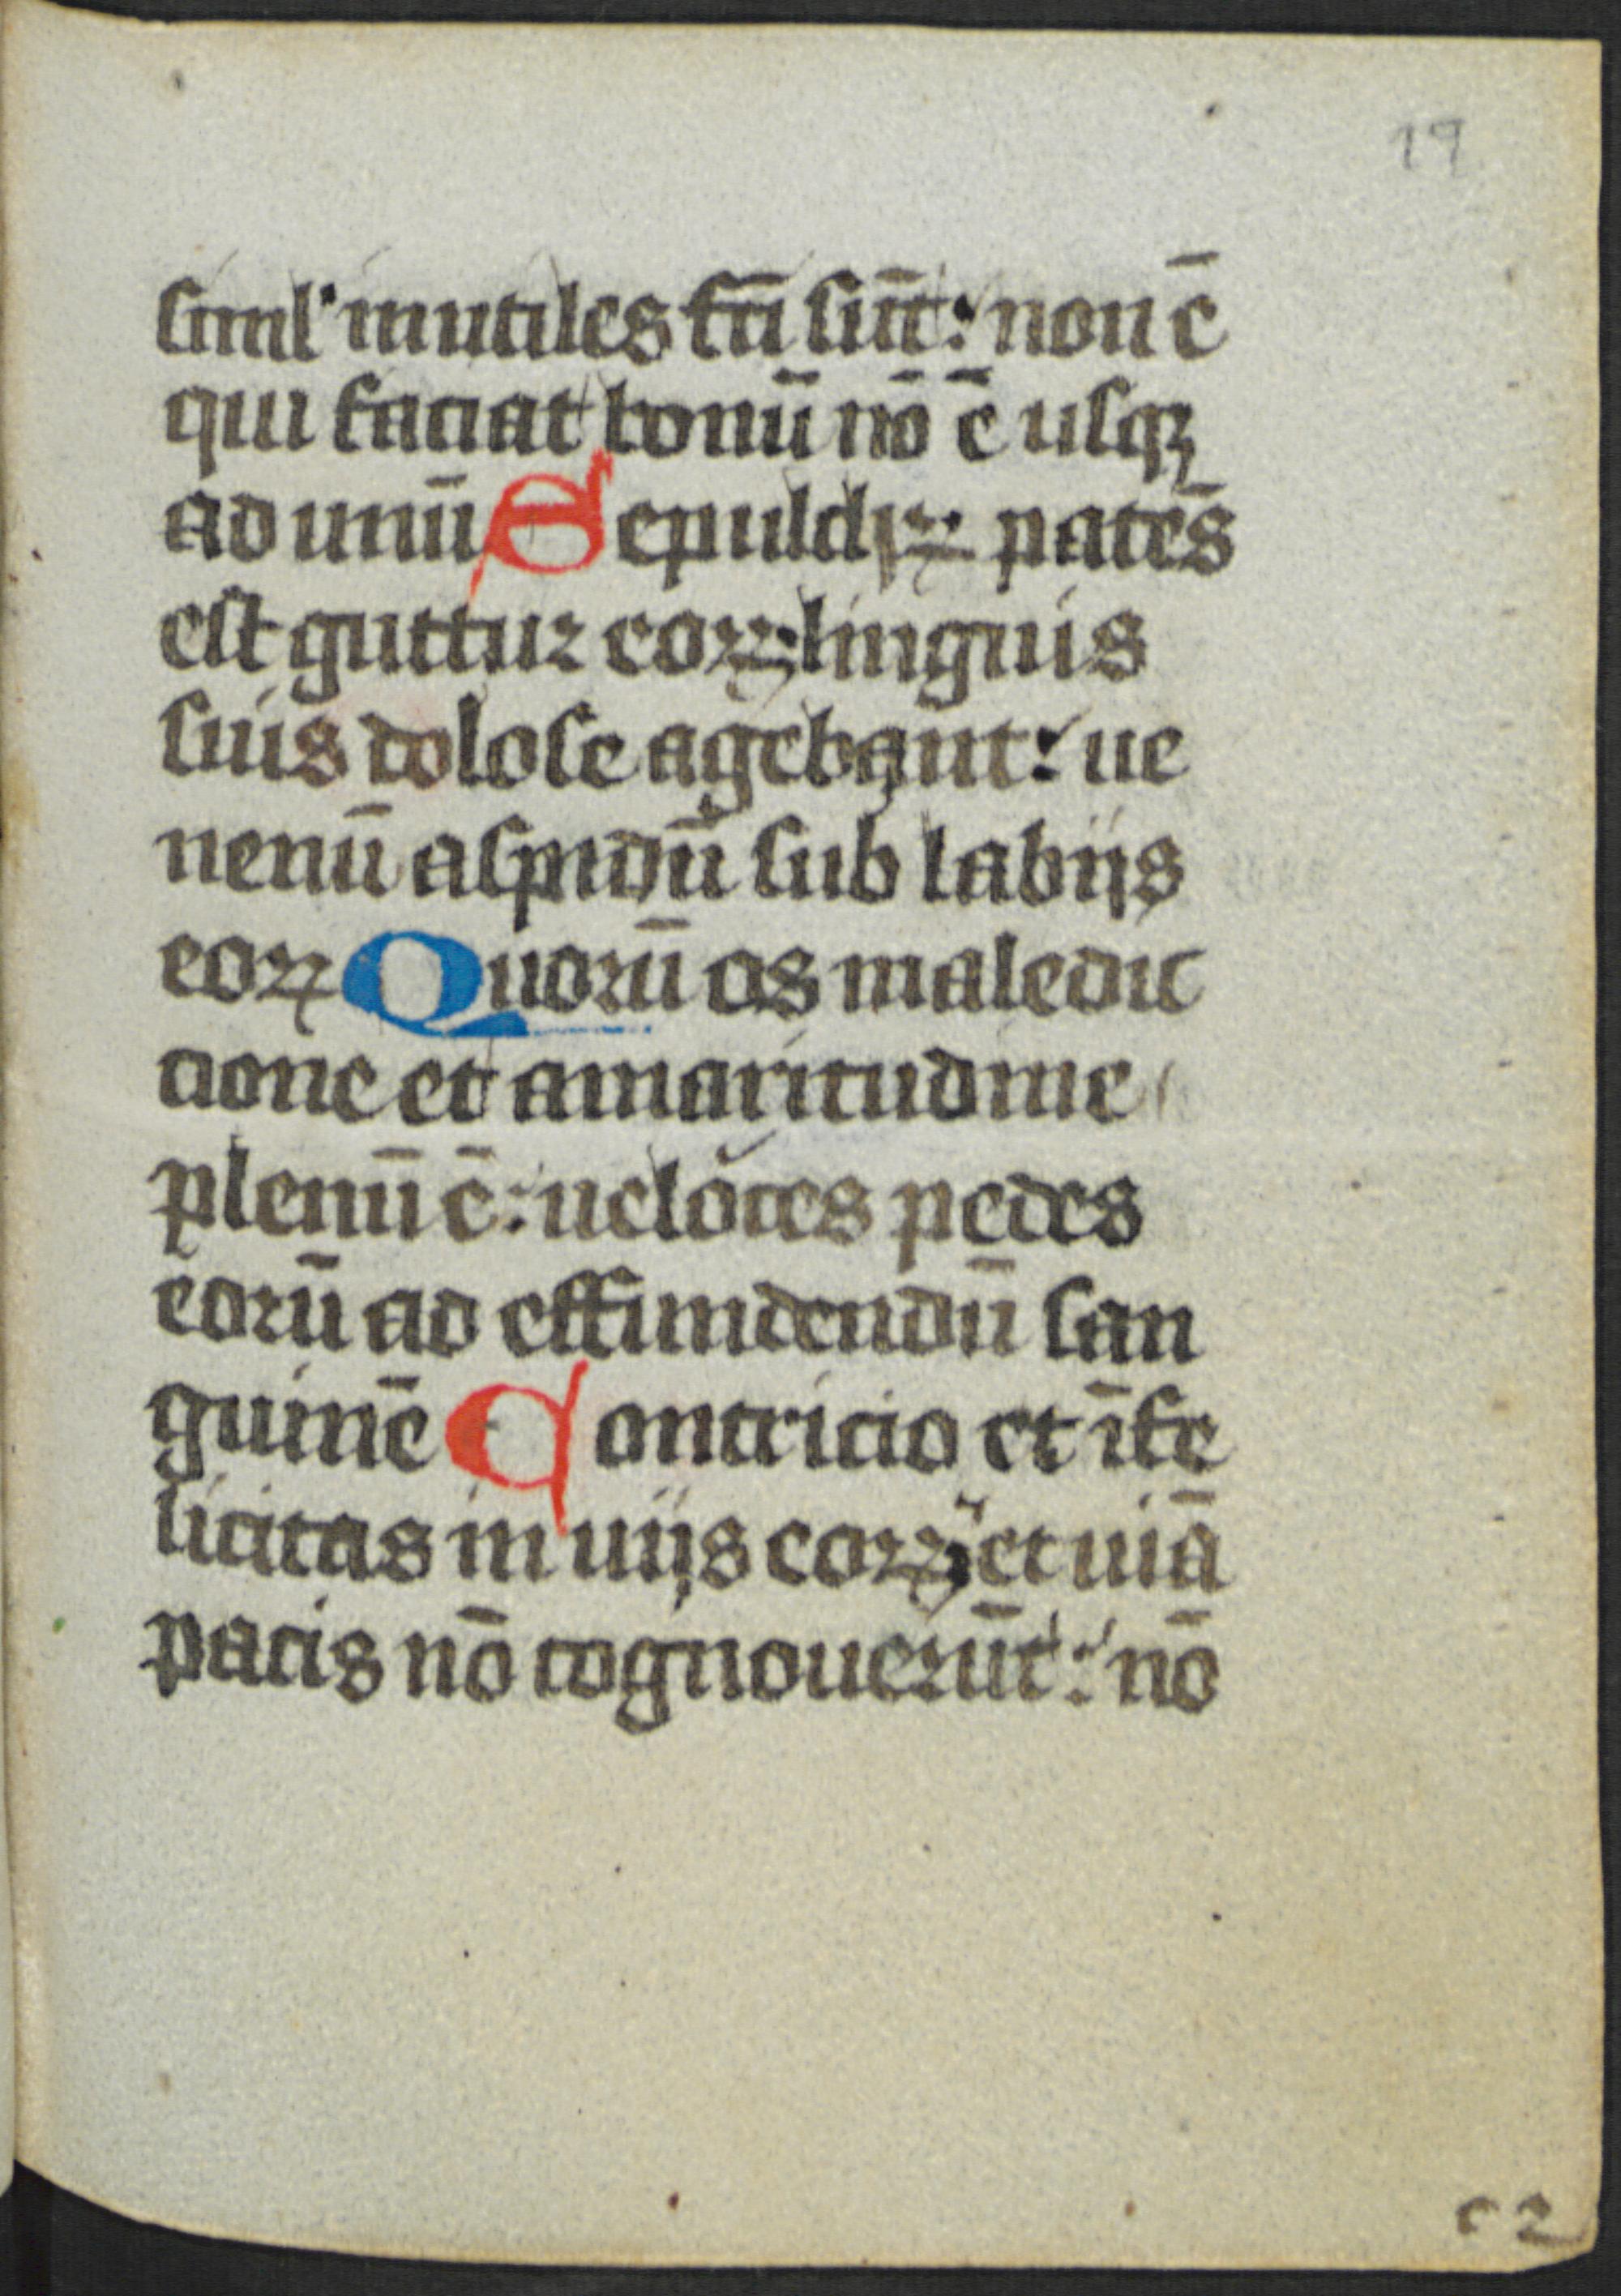 19
siml' inutiles fc̄i sūt: non ē
qui faciat bonū nō ē usqꝫ
ad unū Sepulchꝝ patēs
est guttur eoꝝ linguis
suis dolose agebant: ue
nenū aspidū sub labijs
eoꝝ Quorū os maledic
cione et amaritudine
plenū ē: ueloces pedes
eorū ad effundendū san
guinē Contricio et īfe
licitas in uijs eoꝝ et uiā
pacis nō cognouerūt: nō
c2